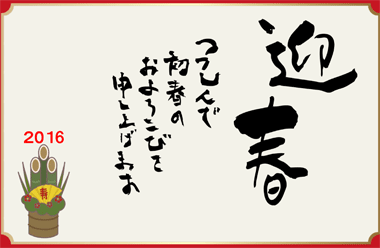 迎春
つつしんで
初春の
およろこびを
申し上げます
2016